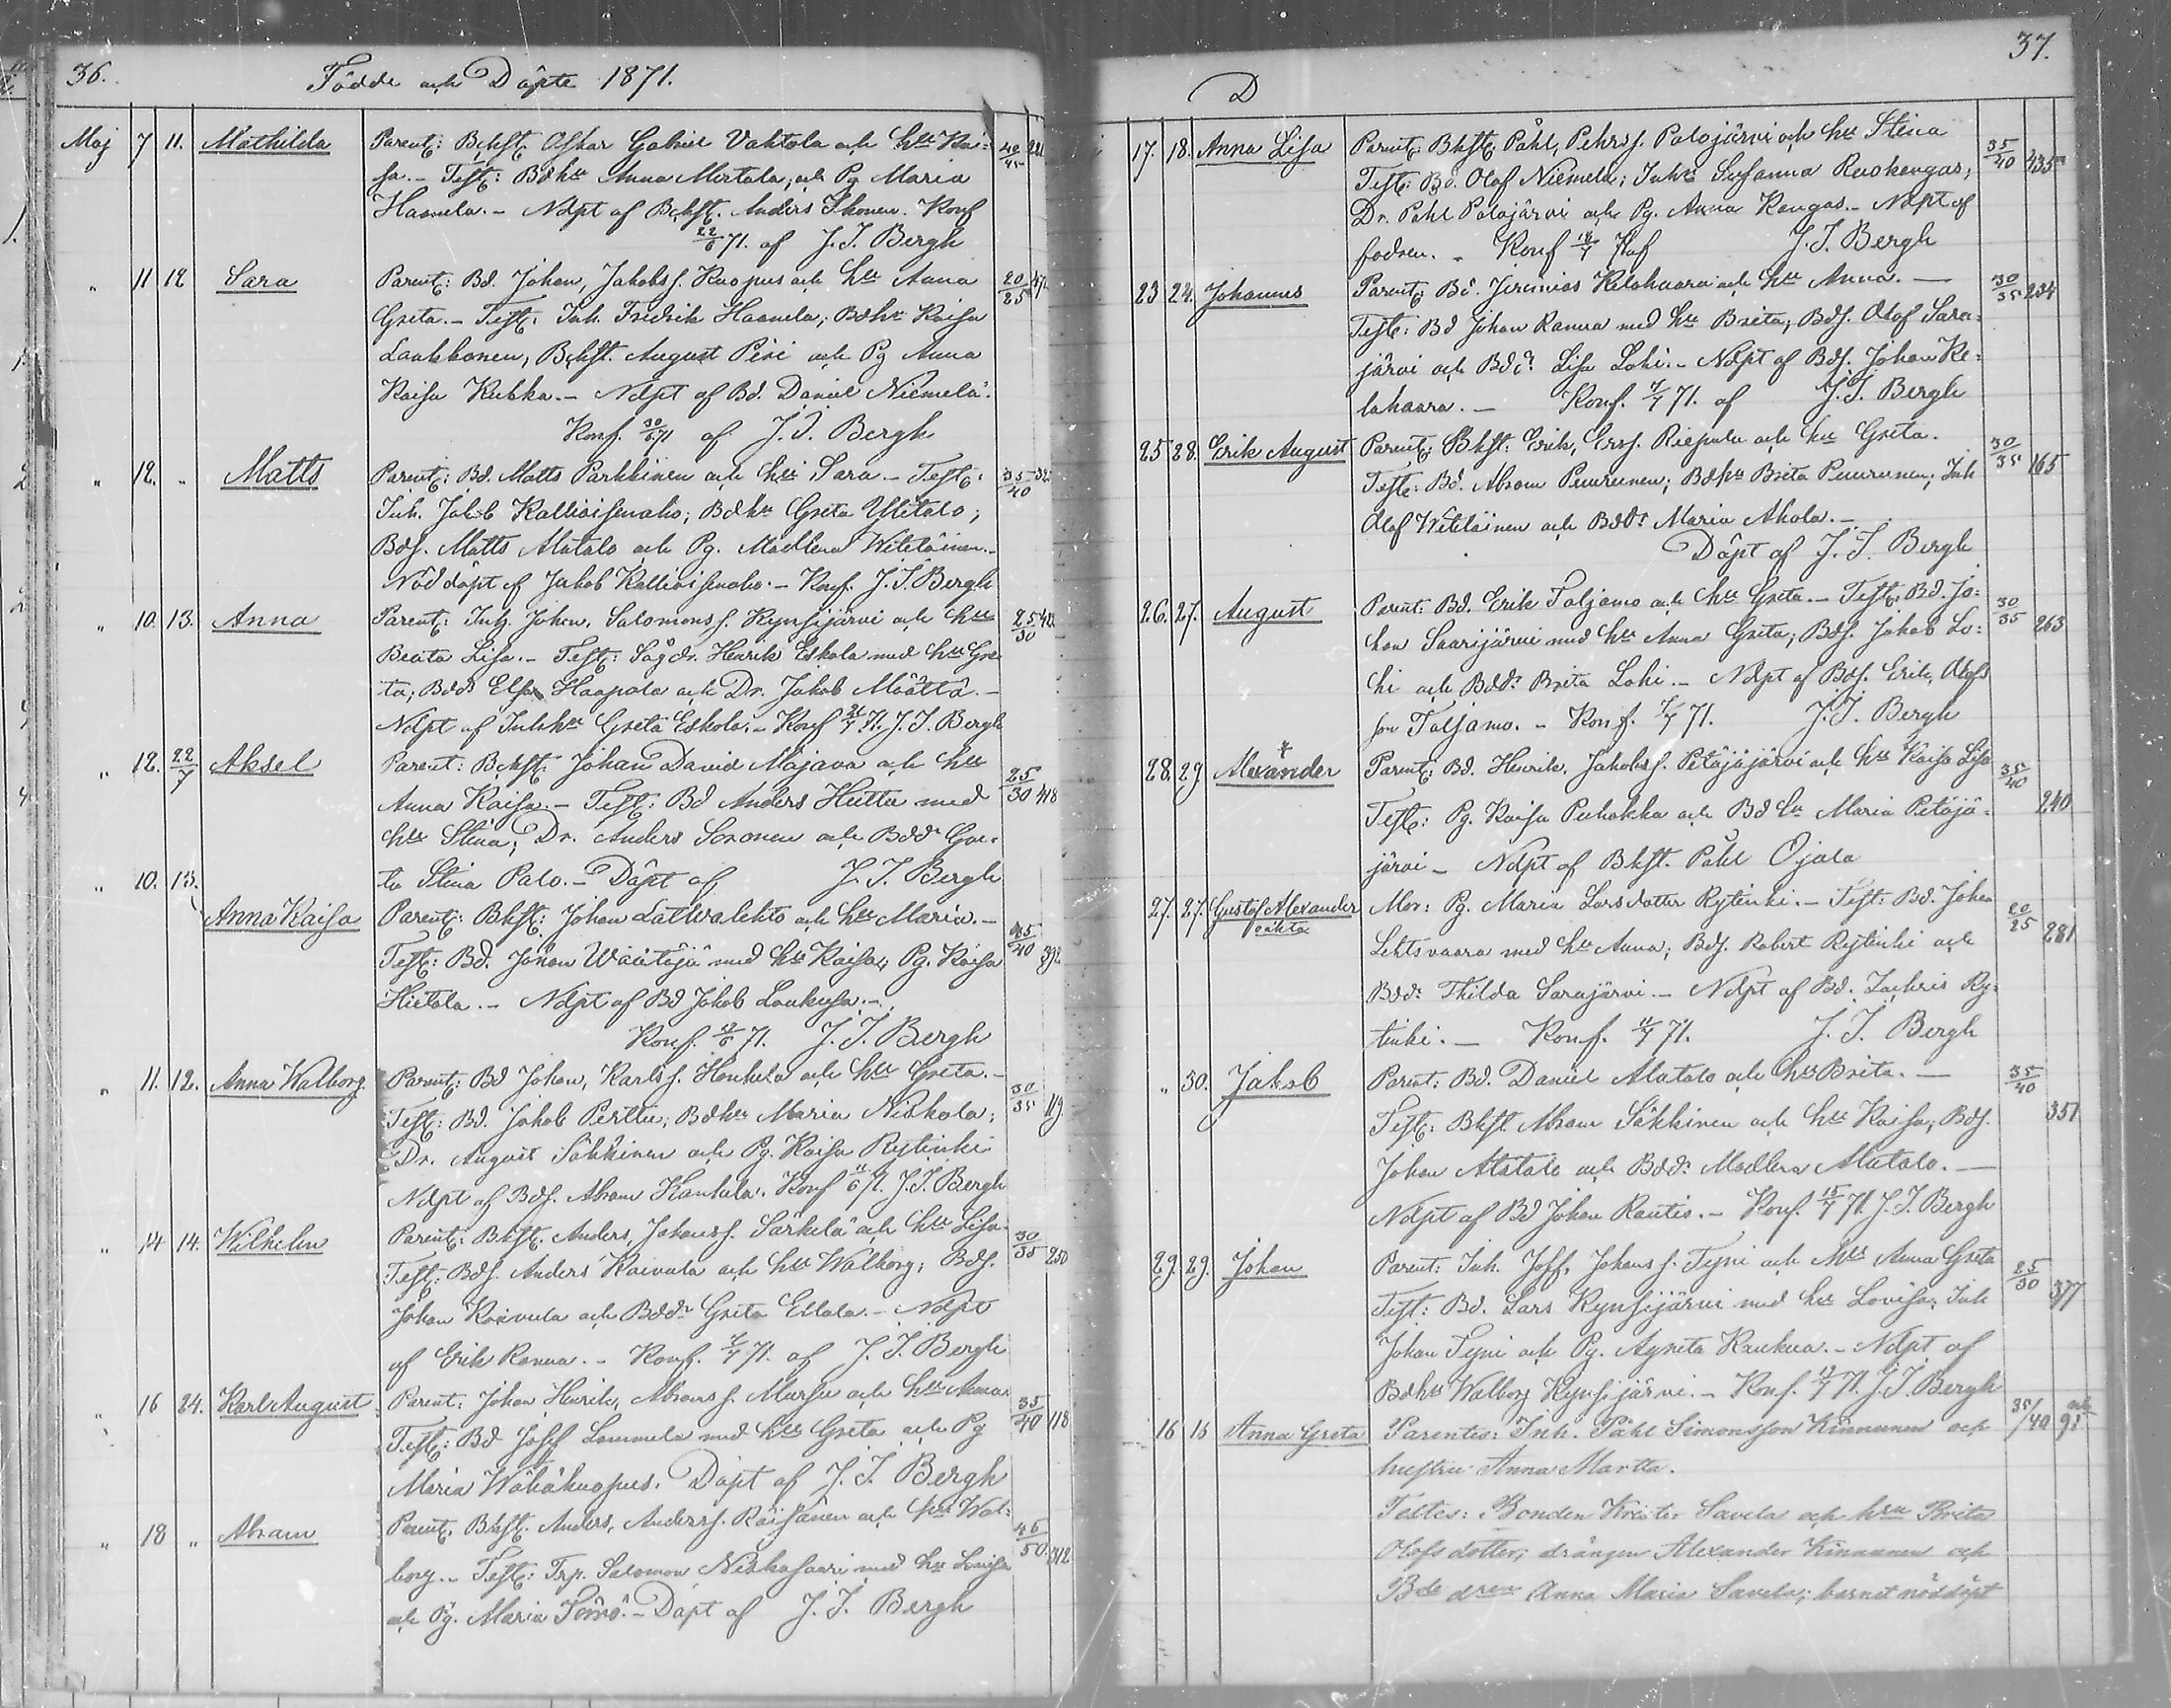 36.
Födde och Döpte 1871.
Maj 7 11. Mathilda Parent: Bhft. Oskar Gabriel Vahtola och Hu Kai=
sa. – Test: Bdhu Anna Mertala, och Pg Maria
Haanela. – Ndpt af Bhft. Anders Ihonen. Konf
22/6 71. af J. I. Bergh
" 11 12 Sara Parent: Bd. Johan, Jakobs s. Kuopus och Hu Anna 20/25
Greta. – Test: Inh. Fredrik Haanela; Bdhu Kaisa
Laakkonen, Bhft. August Piri och Pg Anna
Kaisa Kukka. – Ndpt af Bd. Daniel Niemelä.
Konf. 30/6 71 af J. I. Bergh
" 12. " Matts Parent: Bd. Matts Parkkinen och Hu Sara – Test: 35/40
Inh. Jakob Kallioisenaho; Bdhu Greta Ylitalo;
Bds. Matts Alatalo och Pg. Madlena Wiletäinen. –
Nöddöpt af Jakob Kallioisenaho. – Konf. J. I. Bergh
" 10. 13. Anna Parent: Inh. Johan, Salomons s. Kynsijärvi och Hu 25/30
Beata Lisa. – Test: Sågdr. Henrik Eskola med Hu Gre
ta, Bdd. Elsa Haapala och Dr. Jakob Määttä. –
Ndpt af Inhhu Greta Eskola. – Konf 71. J. I. Bergh
" 12. 22/7 Aksel Parent: Bhft. Johan David Majava och Hu 25/30 418
Anna Kaisa. – Test: Bd Anders Hettu med
Hu Stina; Dr. Anders Soronen och Bddr Gre=
ta Stina Palo. – Döpt af J. I. Bergh
" 10. 13. Anna Kaisa Parent: Bhft: Johan Latvalehto och Hu Maria. – 35/40 392
Test: Bd. Johan Wäätäjä med Hu Kaisa, Pg. Kaisa
Hietala. – Ndpt af Bd Jakob Loukusa. –
Konf. 71. J. I. Bergh
" 11. 12. Anna Walborg Parent: Bd Johan, Karls s. Honkela och Hu Greta. – 30/35 119
Test: Bd. Jakob Perttu, Bdhu Maria Niskala;
Dr. August Säkkinen och Pg. Kaisa Rytinki
Ndpt af Bds. Abram Kantala. Konf 11/6 71. J. I. Bergh
" 14 14. Wilhelm Parent: Bhft. Anders, Johans s. Särkelä och Hu Lisa 30/35 250
Test: Bds. Anders Kaivula och Hu Walborg; Bds.
Johan Koivula och Bddr Greta Ellala. – Ndpt
af Erik Ranua. – Konf. 71. af J. I. Bergh
" 16 24. Karl August Parent: Johan Henrik, Abrams s. Mursu och Hu Anna 35/40 118
Test: Bd Josef Lammela med Hu Greta och Pg
Maria Wähäkuopus. Döpt af J. I. Bergh
" 18 " Abram Parent. Bhft. Anders, Anders s. Räisänen och Hu Wal= 45/50 312
borg. – Test: Trp. Salomon Niskasaari med Hu Lovisa
och Pg. Maria Simö. – Döpt af J. I. Bergh
37.
D
17. 18. Anna Lisa Parent: Bhft. Påhl, Pehrs s. Palojärvi och Hu Stina 35/40 435
Test: Bd. Olof Niemelä; Inhu Susanna Ruokangas,
Dr. Påhl Palojärvi och Pg. Anna Kangas. – Ndpt af
fadren. – Konf 71 af J. I. Bergh
23 24. Johannes Parent: Bd. Jeremias Kelahaara och Hu Anna. – 30/35 234
Test: Bd Johan Ranua med Hu Brita, Bds. Olof Sara=
järvi och Bdd. Lisa Lohi. – Ndpt af Bds. Johan Ke=
lahaara. – Konf. 71. af J. I. Bergh
25 28. Erik August Parent: Bhft. Erik, Ers s. Riepula och Hu Greta. 30/35 165
Test: Bd. Abram Puurunen; Bdhu Brita Puurunen, Inh
Olof Wiletäinen och Bddr Maria Ahola. –
Döpt af J. I. Bergh
26. 27. August Parent: Bd. Erik Taljamo och Hu Greta. – Test: Bd. Jo= 30/35 263
han Saarijärvi med Hu Anna Greta; Bds. Jakob Lo=
hi och Bddr Brita Lohi. – Ndpt af Bds. Erik, Olofs
son Taljamo. – Konf. 71. J. I. Bergh
28. 29 Alexander Parent: Bd. Henrik, Jakobs s. Petäjäjärvi och Hu Kaisa Lisa 35/40 240
Test: Pg. Kaisa Puhakka och Bdhu Maria Petäjä=
järvi – Ndpt af Bhft. Påhl Ojala
27. 27. Gustaf Alexander oäkta Mor: Pg. Maria Larsdotter Rytinki. – Test: Bd. Johan 20/25 281
Lehtovaara med Hu Anna; Bds. Robert Rytinki och
Bddr Thilda Sarajärvi. – Ndpt af Bd. Zachris Ry=
tinki. – Konf. 71. J. I. Bergh
" 30. Jakob Parent: Bd. Daniel Alatalo och Hu Brita. – 35/40 351
Test: Bhft Abram Säkkinen och Hu Kaisa; Bds.
Johan Alatalo och Bddr Madlena Alatalo. –
Ndpt af Bd Johan Rautio. – Konf. 15/7 71. J. I. Bergh
29. 29. Johan Parent: Inh. Joss, Johans s. Tyni och Hu Anna Greta 25/30 377
Test: Bd. Lars Kynsijärvi med Hu Lovisa; Inh
Johan Tyni och Pg. Agneta Kaukua. – Ndpt af
Bdhu Walborg Kynsijärvi. – Konf. 71. J. I. Bergh
16 16 Anna Greta Parentes: Inh. Påhl Simonsson Kinnunen och 35/40
hustru Anna Martta.
Testes: Bonden Krister Savela och hru Brita
Olofs dotter; drängen Alexander Kinnunen och
Bde dren Anna Maria Savela; barnet nöddöpt